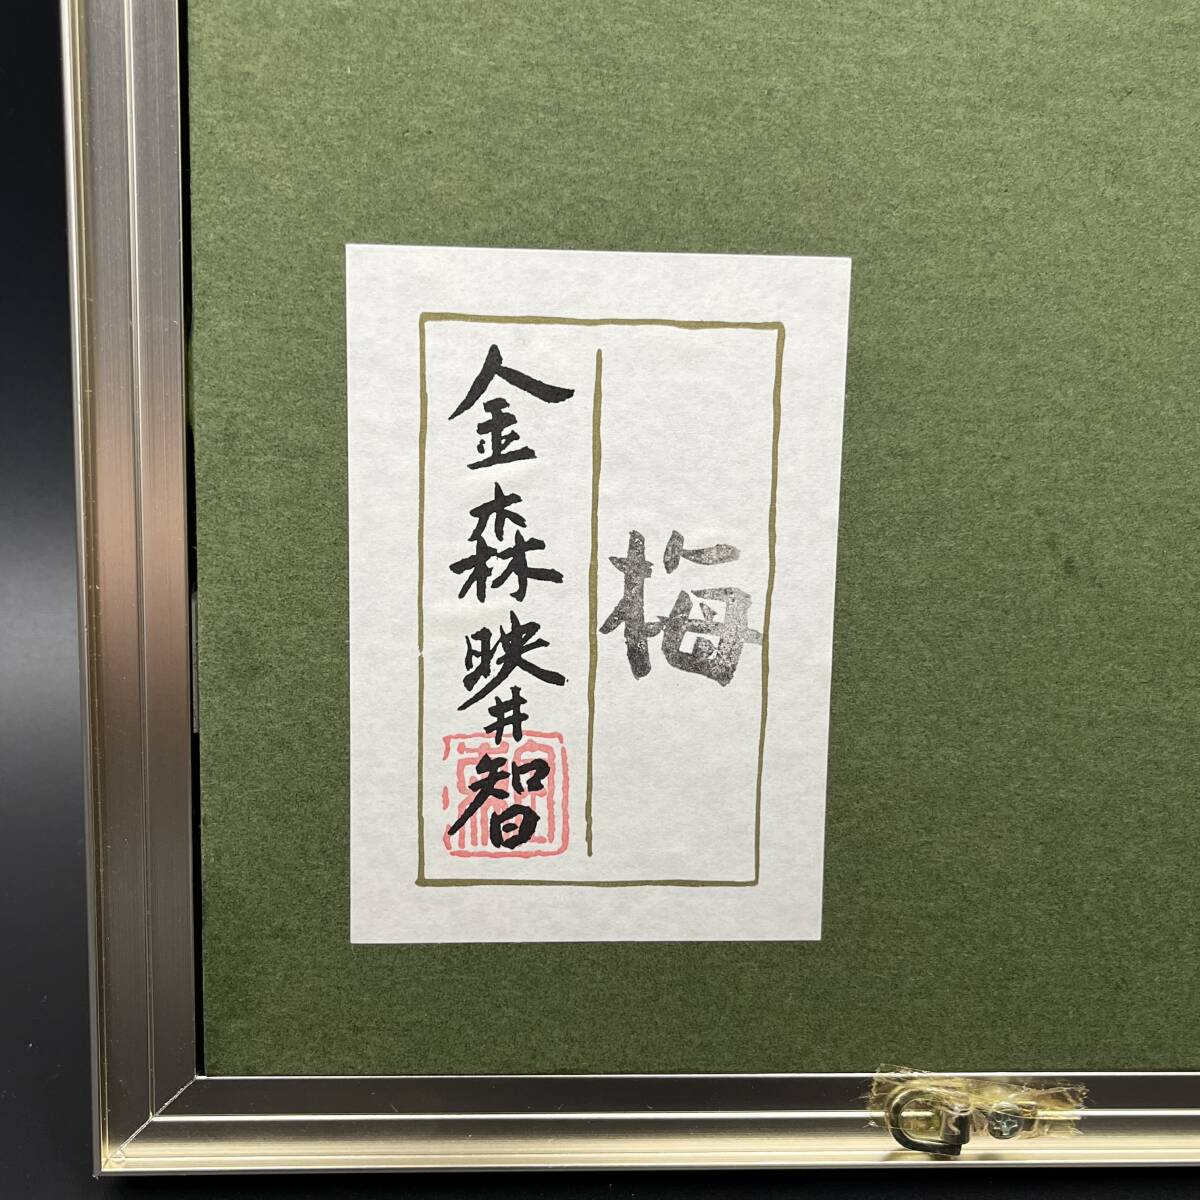 梅
金森映井智